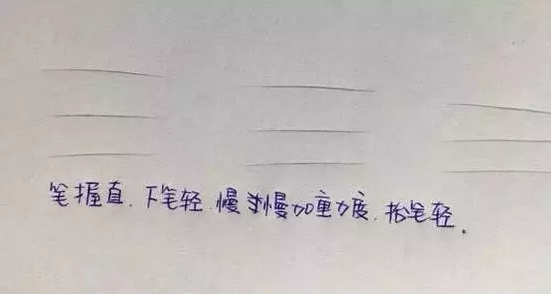 笔握直.下笔轻.慢慢加重力度.抬笔轻.